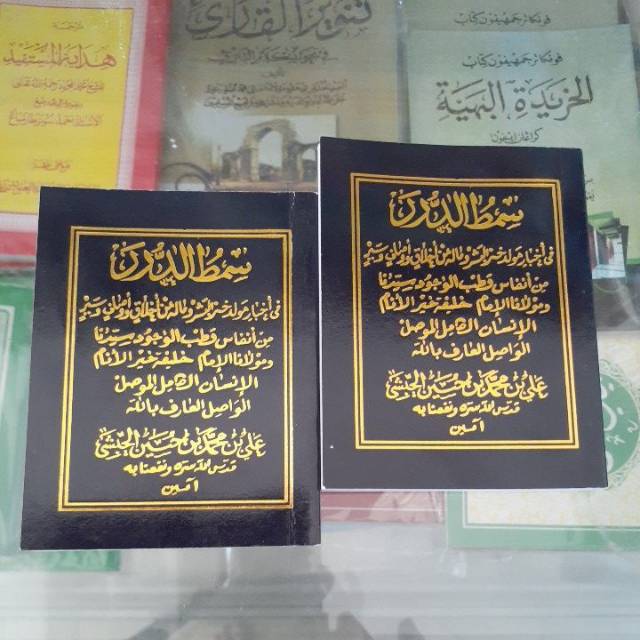 ترجمة
هداية المستفيد
تنوير القاري
فوتكا ترجمهىٔون كتاب
فوتكا ترجمهىٔون كتاب
الخريدة البهية
سمط الدرر
في أخبار مولد خير البشر وما له من أخلاق وأوصاف وسير
من أنفاس قطب الوجود سيدنا
ومولانا الإمام خليفة خير الأنام
الإنسان الكامل الموصل
الواصل العارف بالله
علي بن محمد بن حسين الحبشي
قدس الله سره ونفعنا به
آمين
سمط الدرر
في أخبار مولد خير البشر وما له من أخلاق وأوصاف وسير
من أنفاس قطب الوجود سيدنا
ومولانا الإمام خليفة خير الأنام
الإنسان الكامل الموصل
الواصل العارف بالله
علي بن محمد بن حسين الحبشي
قدس الله سره ونفعنا به
آمين